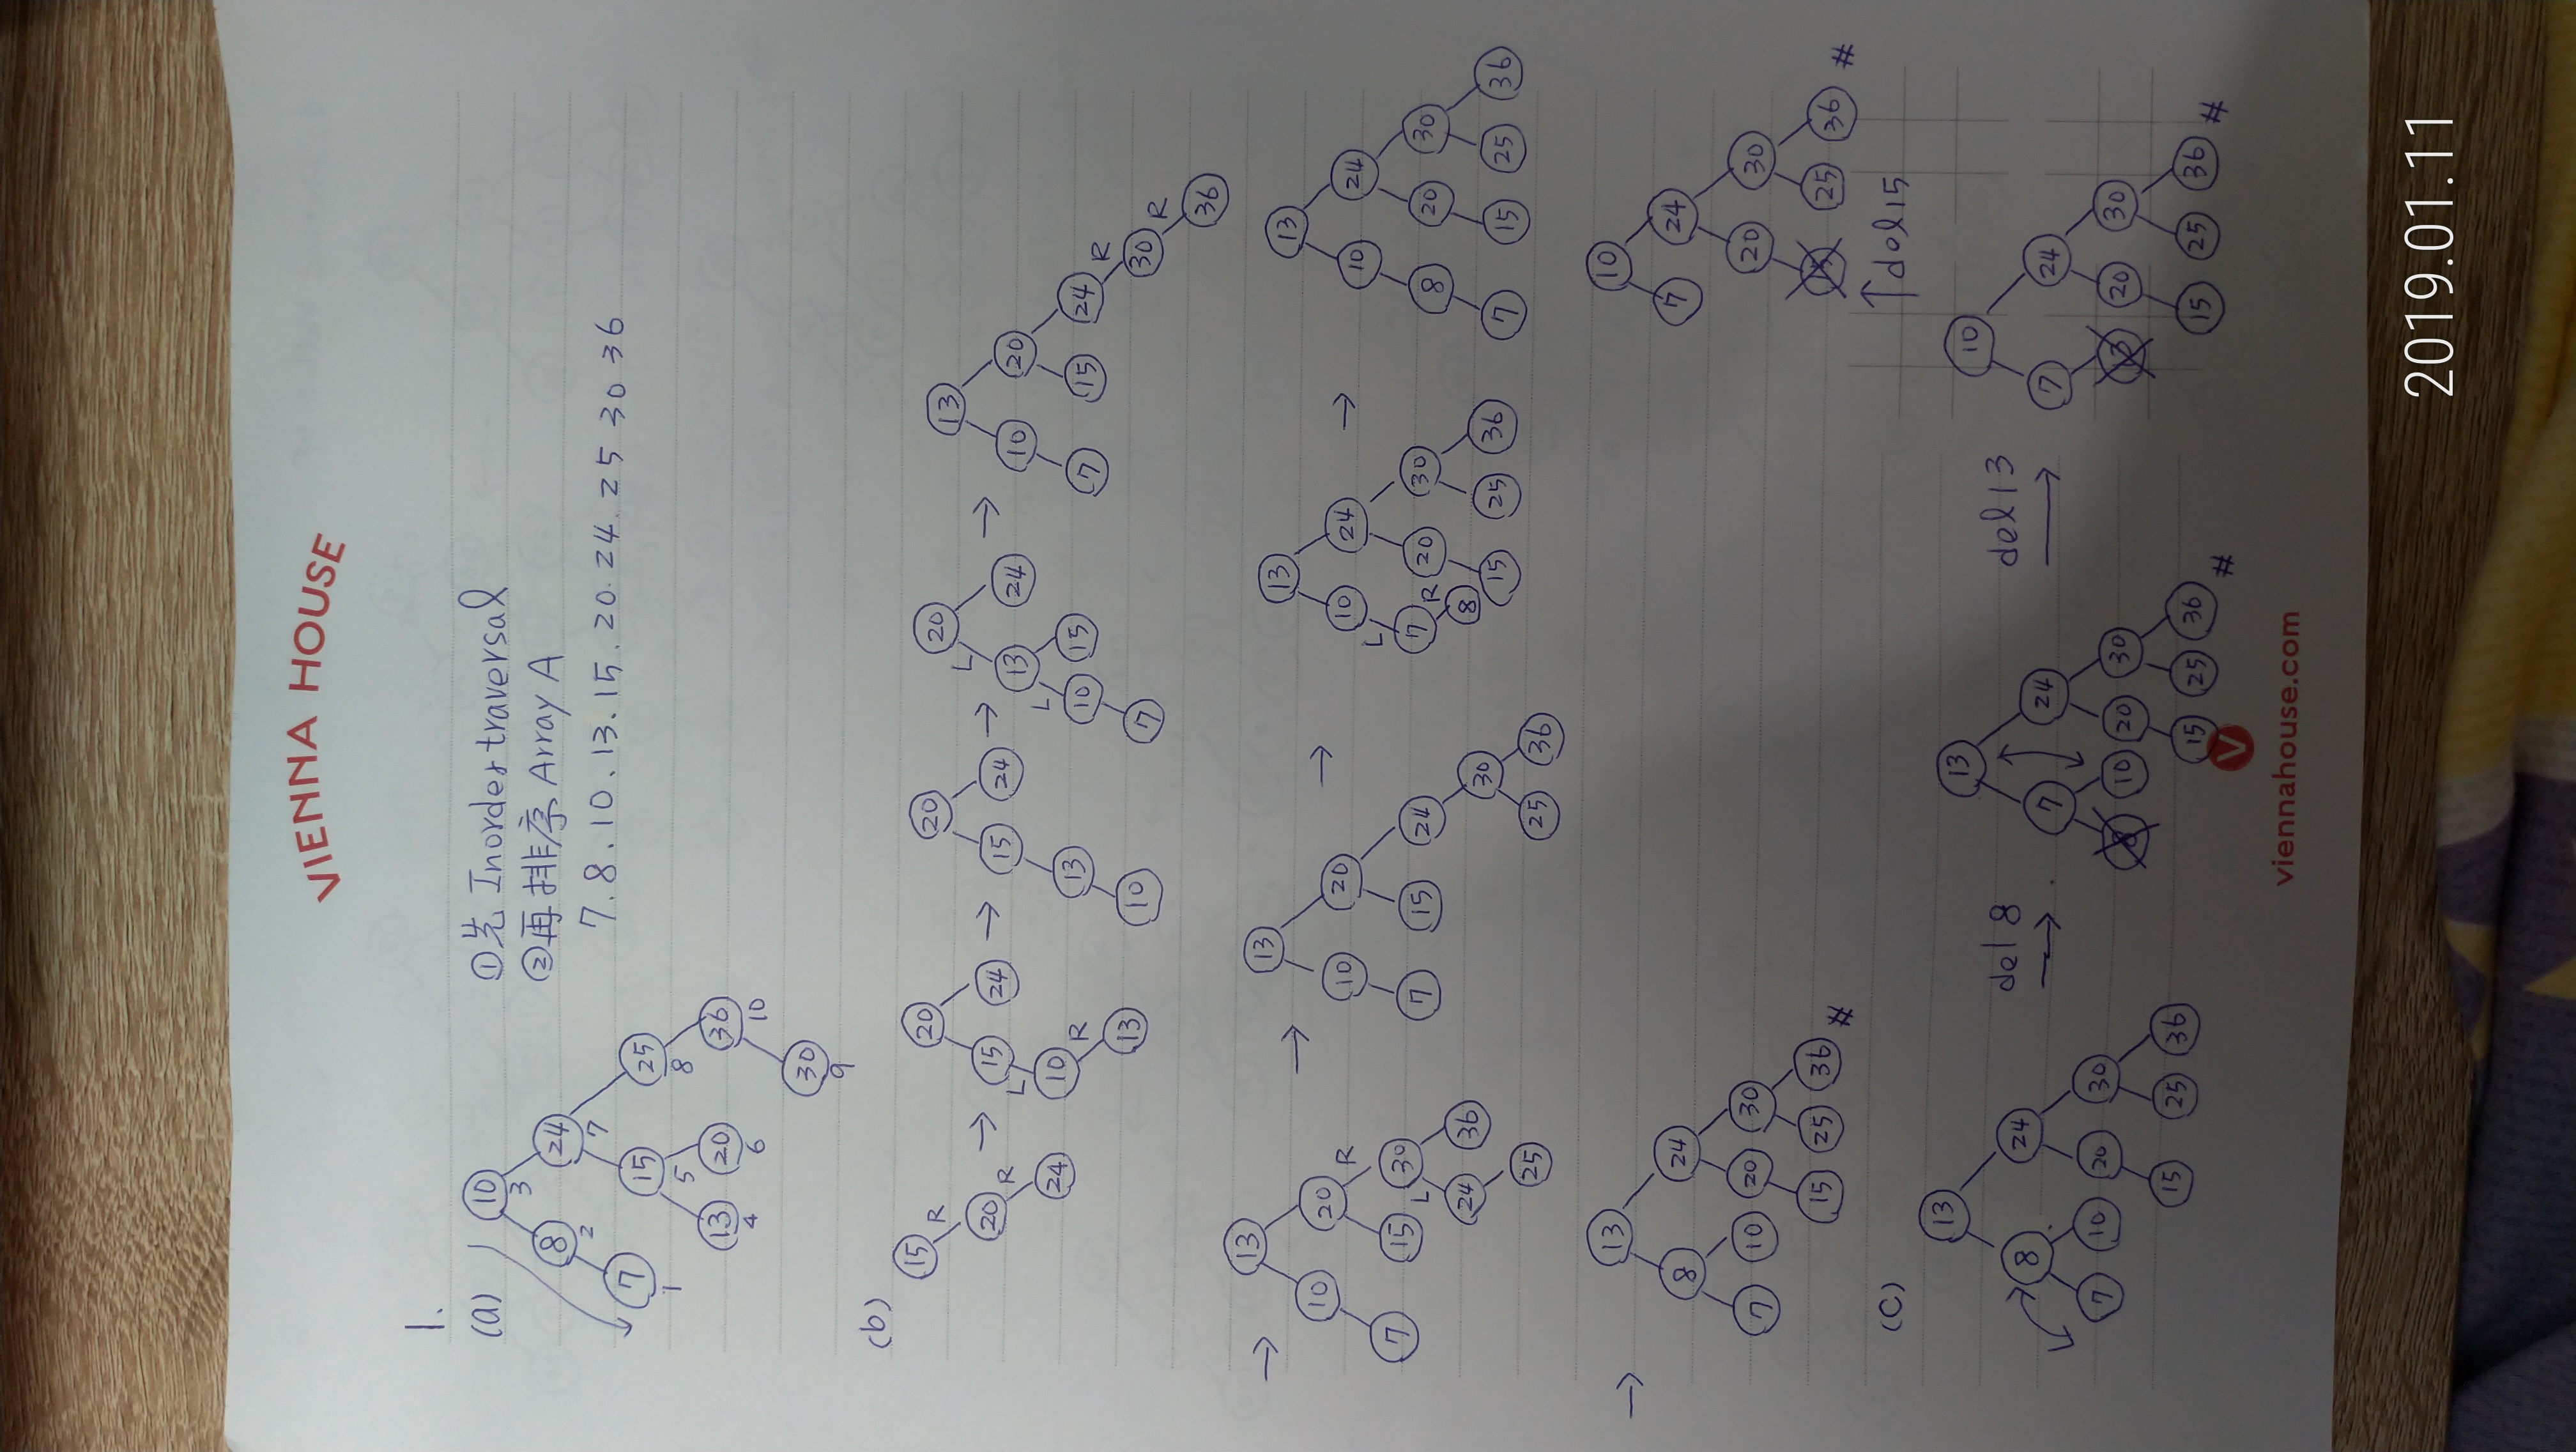 VIENNA HOUSE
1.
(a)
①先 Inorder traversal
②再排序 Array A
7. 8. 10. 13. 15. 20. 24. 25 30 36
10
3
8 24
2 7
7 15 25
1 5 8
13 20 36
4 6 10
30
9
(b)
15 R 20 R 24 →
20 15 24 L 10 R 13 →
20 15 24 13 10 →
20 L 13 24 L 10 15 7 →
13 10 20 7 15 24 R 30 R 36
→ 13 10 20 R 7 15 L 30 24 36 25
→ 13 10 20 7 15 24 30 25 36
→ 13 10 24 L 7 R 20 30 8 15 25 36
→ 13 10 24 8 20 30 7 15 25 36
→ 13 8 24 7 10 20 30 15 25 36 #
10 7 24 20 30 25 36 #
↑del 15
(C)
13 8 24 7 10 20 30 15 25 36
del 8 →
13 7 24 10 20 30 15 25 36 #
del 13 →
10 7 24 20 30 15 25 36 #
V
viennahouse.com
2019.01.11